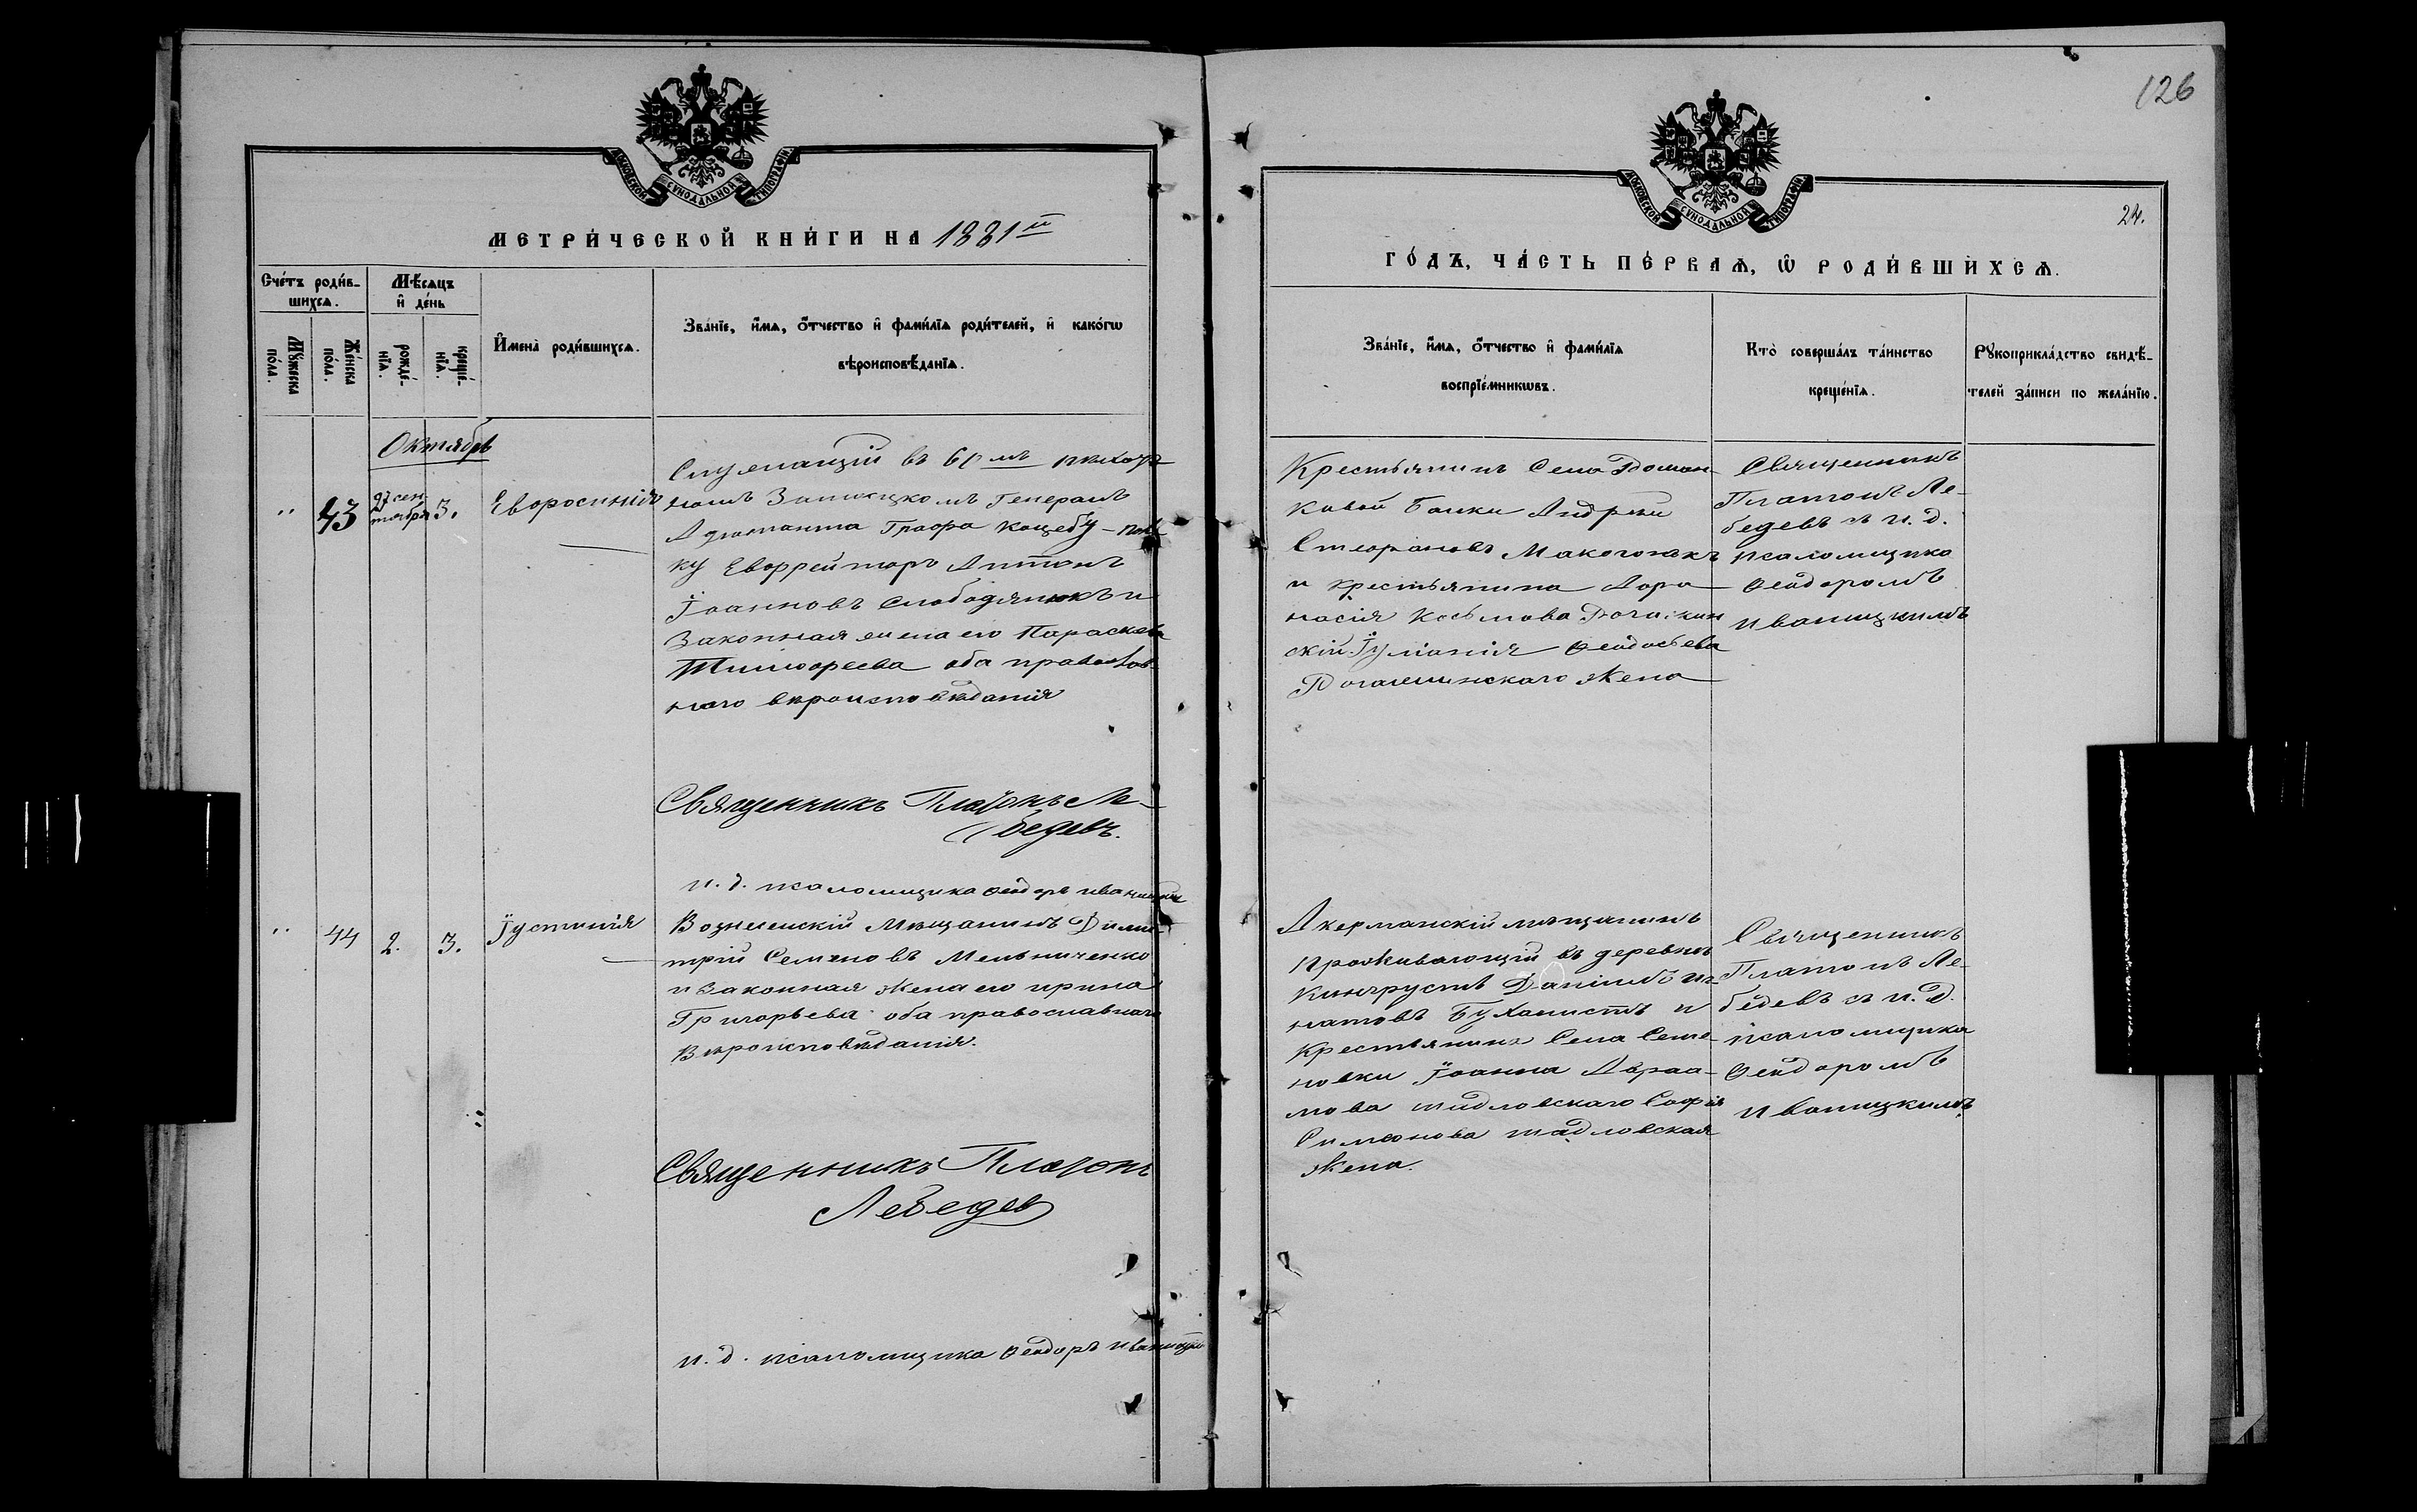 126
24.
МОСКОВСКОЙ СУНОДАЛЬНОЙ ТИПОГРАФІИ
МОСКОВСКОЙ СУНОДАЛЬНОЙ ТИПОГРАФІИ
МЕТРИ́ЧЕСКОЙ КНИ́ГИ НА 1881й
ГО́ДЪ, ЧА́СТЬ ПЕ́РВАѦ, Ѿ РОДИ́ВШИХСѦ.
Сче́тъ роди́в-
шихсѧ.
Мꙋ́жеска
по́ла.
Же́нска
по́ла.
Мѣ́сѧцъ
и҆ де́нь
рожде́-
нїѧ.
креще́-
нїѧ.
И҆мена̀ роди́вшихсѧ.
Зва́нїе, и҆́мѧ, ѻ҆́тчество и҆ фамѝлїѧ роди́телей, и҆ како́гѡ
вѣроисповѣ́данїѧ.
Зва́нїе, и҆́мѧ, ѻ҆́тчество и҆ фами́лїѧ
воспрїе́мникѡвъ.
Кто̀ соверша́лъ та́инство
креще́нїѧ.
Рꙋкоприкла́дство свидѣ́-
телей за́писи по жела́нїю.
Октябрь
"
43
27 сен-
тября
3.
Евросинія
Служащій въ 61мъ пѣхот-
номъ Замосцкомъ Генералъ
Адютанта Графа Коцебу - пол-
ку Евфрейторъ Антонъ
Іоанновъ Слободянюкъ и
Законная жена его Параскева
Тимофеева оба православ-
наго вѣроисповѣданія
Священникъ Платонъ Ле-
бедевъ.
и. д. псаломщика Ѳеодоръ Иваницкій
Крестьянинъ Села Доман-
ковой Балки Андрей
Стефановъ Макогонъ
и крестьянина Афо-
насія Косьмова
Іуліанія Ѳеодосьева
жена
Священникъ
Платонъ Ле-
бедевъ съ и. д.
псаломщика
Ѳеодоромъ
Иваницкимъ
"
44
2.
3.
Іустинія
Вознесенскій Мѣщанинъ Дими-
трій Семеновъ Мельниченко
и Законная жена его Ирина
Григорьева оба православнаго
Вѣроисповѣданія.
Священникъ Платонъ
Лебедев
и. д. псаломщика Ѳеодоръ Иваницкій
Акерманскій мѣщанинъ
Проживающій въ деревнѣ
Даніилъ Иг-
натовъ и
Крестьянина Села Семе-
новки Іоанна Авраа-
мова Шидловскаго Софія
Симеонова Шидловская
жена.
Священникъ
Платонъ Ле-
бедевъ съ и. д.
псаломщика
Ѳеодоромъ
Иваницкимъ